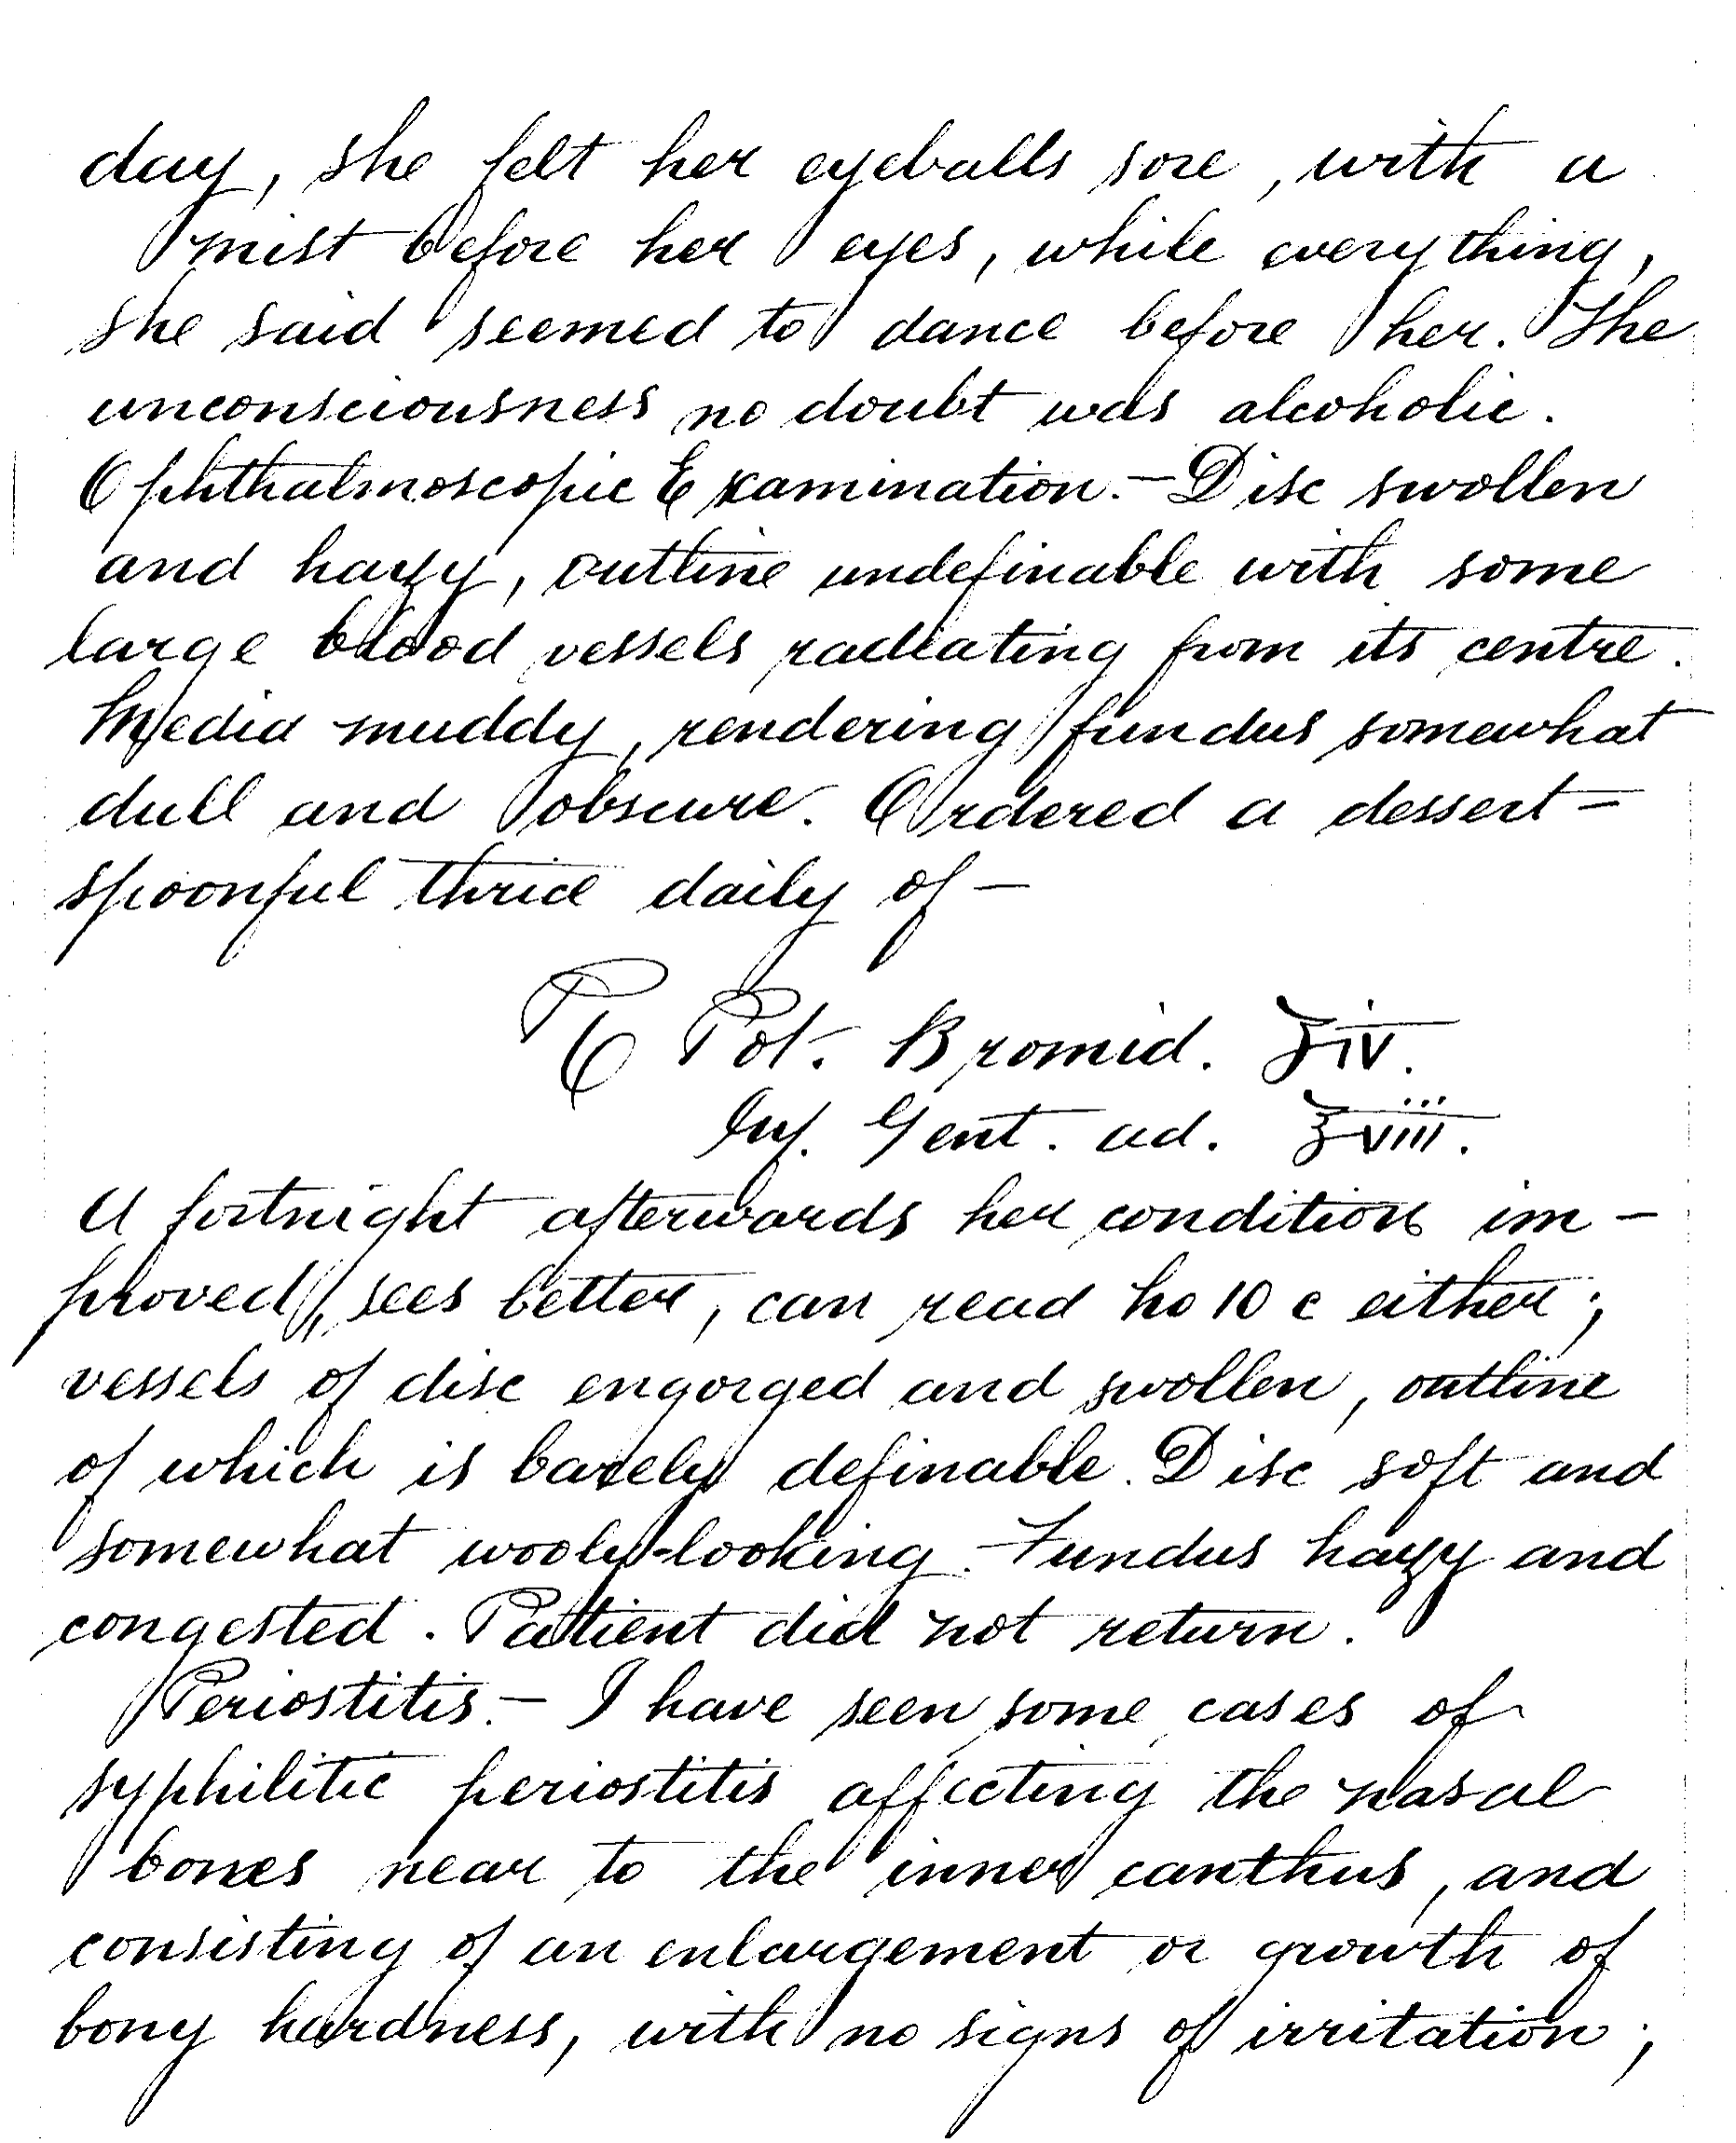 day, she felt her eyeballs sore, with a
mist before her eyes, while everything,
she said seemed to dance before her. The
unconsciousness no doubt was alcoholic.
Ophthalmoscopic Examination.—Disc swollen
and hazy, outline undefinable with some
large blood vessels radiating from its centre.
Media muddy, rendering fundus somewhat
dull and obscure. Ordered a dessert-
spoonful thrice daily of—
℞ Pot. Bromid. ʒiv.
Inf. Gent. ad. ℥viii.
A fortnight afterwards her condition im-
proved, sees better, can read No 10 c either;
vessels of disc engorged and swollen, outline
of which is barely definable. Disc soft and
somewhat wooly-looking. Fundus hazy and
congested. Patient did not return.
Periostitis.— I have seen some cases of
syphilitic periostitis affecting the nasal
bones near to the inner canthus, and
consisting of an enlargement or growth of
bony hardness, with no signs of irritation;